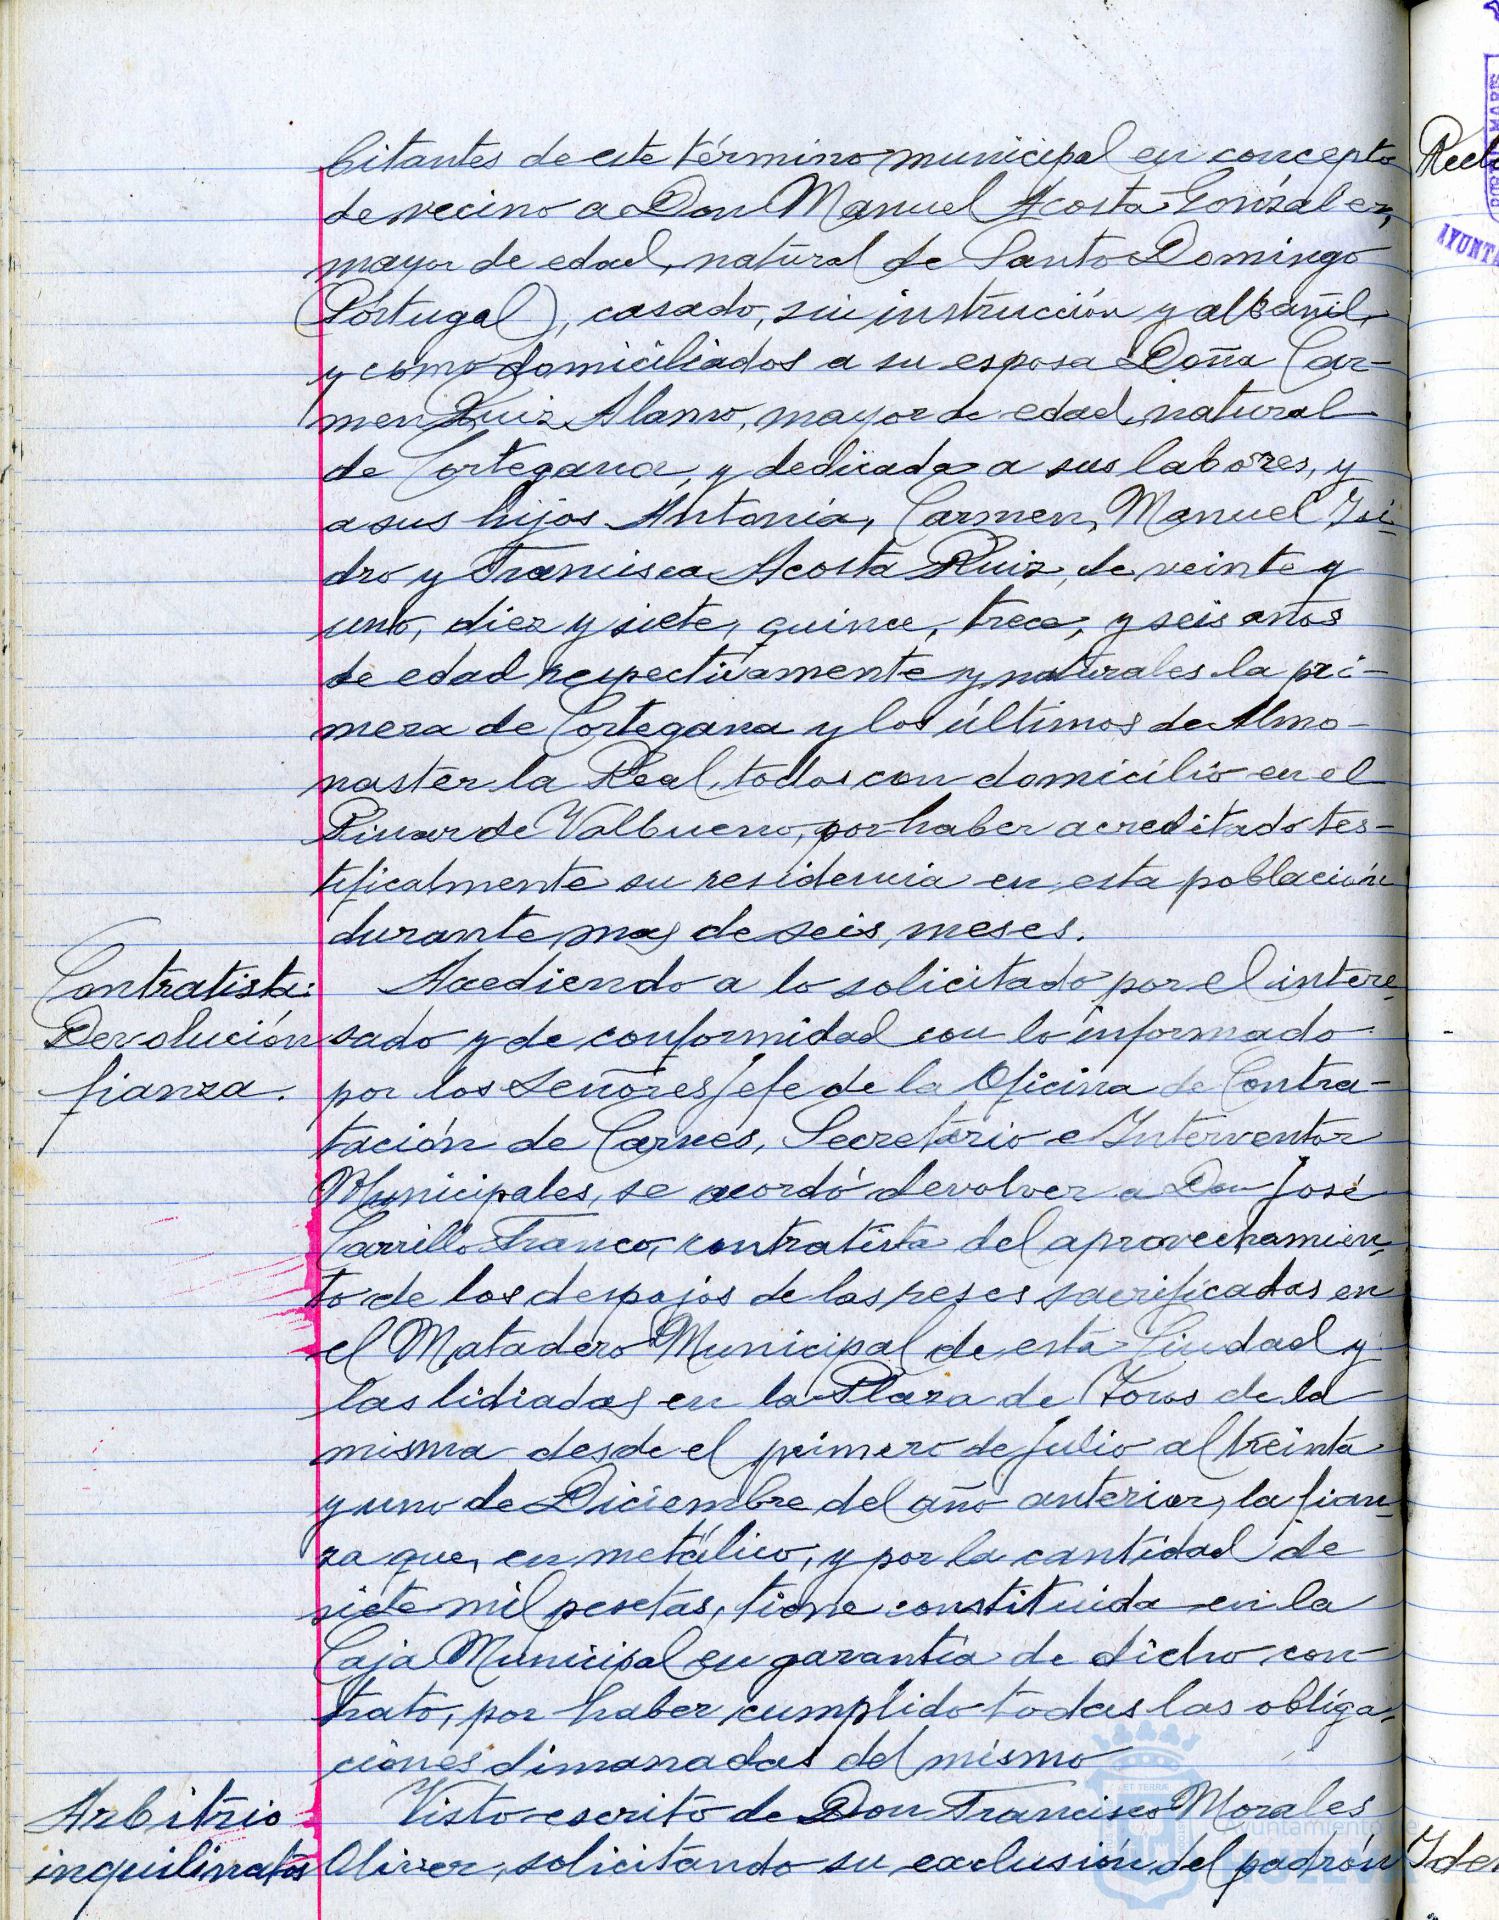 bitantes de este término municipal en concepto
de vecino a Don Manuel Acosta Gonzalez,
mayor de edad, natural de Santo Domingo
(Pórtugal), casado, sin instrucción y albañil,
y como domiciliados a su esposa Doña Car-
men Ruiz Alamo, mayor de edad, natural
de Cortegana, y dedicada a sus labores, y
a sus hijos Antonia, Carmen, Manuel Isi-
dro y Francisca Acosta Ruiz, de veinte y
uno, diez y siete, quince, trece, y seis años
de edad respectivamente y naturales la pri-
mera de Cortegana y los últimos de Almo-
naster la Real, todos con domicilio en el
Pinar de Valbueno, por haber acreditado tes-
tificalmente su residencia en esta población
durante mas de seis meses.
Contratista:
Devolución
fianza.
Accediendo a lo solicitado por el intere-
sado y de conformidad con lo informado
por los Señores Jefe de la Oficina de Contra-
tación de Carnes, Secretario e Interventor
Municipales, se acordó devolver a Don José
Carrillo Franco, contratista del aprovechamien-
to de los despojos de las reses sacrificadas en
el Matadero Municipal de esta Ciudad y
las lidiadas en la Plaza de Toros de la
misma desde el primero de Julio al treinta
y uno de Diciembre del año anterior, la fian-
za que, en metálico, y por la cantidad de
siete mil pesetas, tiene constituida en la
Caja Municipal en garantía de dicho con-
trato, por haber cumplido todas las obliga-
ciones dimanadas del mismo
Arbitrio
inquilinatos
Visto escrito de Don Francisco Morales
Oliver, solicitando su exclusión del padrón
AYUNTA
ET TERRÆ
Ayuntamiento de
HUELVA